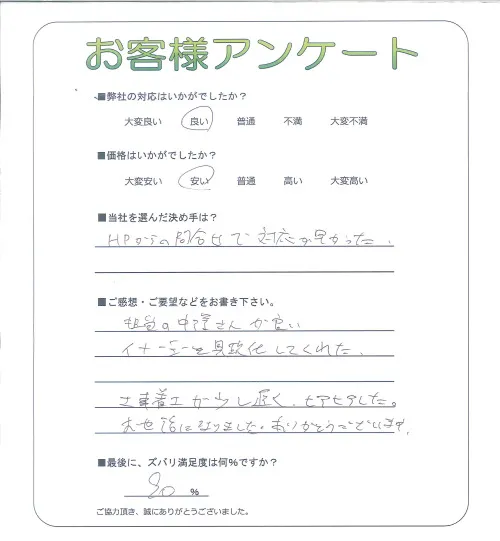 お客様アンケート
■弊社の対応はいかがでしたか？
大変良い 良い 普通 不満 大変不満
■価格はいかがでしたか？
大変安い 安い 普通 高い 大変高い
■当社を選んだ決め手は？
HPからの問合せで対応が早かった.
■ご感想・ご要望などをお書き下さい。
担当の中澤さんが良い
イメージを具現化してくれた.
工事着工が少し遅く、ヒアヒアした。
お世話になりました。ありがとうございます.
■最後に、ズバリ満足度は何%ですか？
90 %
ご協力頂き、誠にありがとうございました。